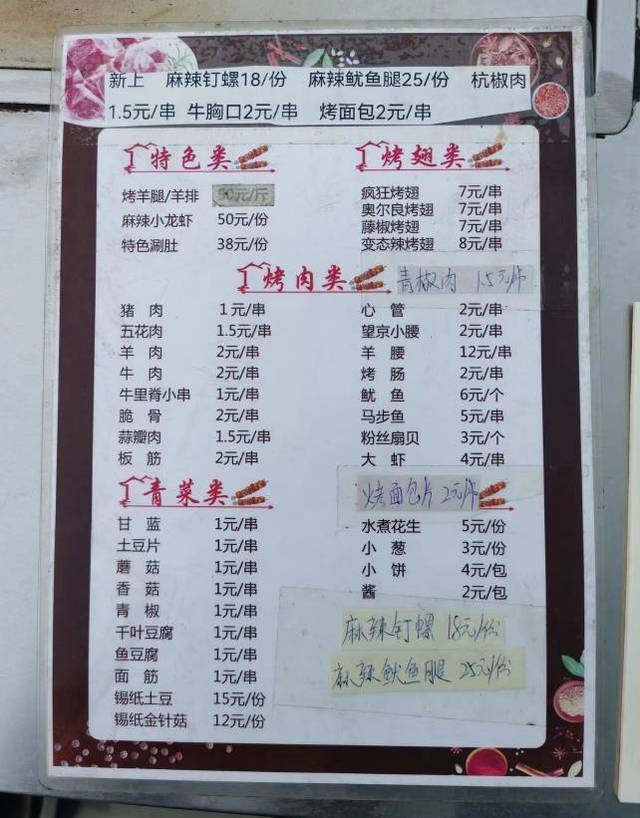 新上 麻辣钉螺18/份 麻辣鱿鱼腿25/份 杭椒肉
1.5元/串 牛胸口2元/串 烤面包2元/串
特色类
烤羊腿/羊排 50元/斤
麻辣小龙虾 50元/份
特色涮肚 38元/份
烤翅类
疯狂烤翅 7元/串
奥尔良烤翅 7元/串
藤椒烤翅 7元/串
变态辣烤翅 8元/串
烤肉类
青椒肉 1.5元/串
猪肉 1元/串
五花肉 1.5元/串
羊肉 2元/串
牛肉 2元/串
牛里脊小串 1元/串
脆骨 2元/串
蒜瓣肉 1.5元/串
板筋 2元/串
心管 2元/串
望京小腰 2元/串
羊腰 12元/串
烤肠 2元/串
鱿鱼 6元/个
马步鱼 5元/串
粉丝扇贝 3元/个
大虾 4元/串
青菜类
甘蓝 1元/串
土豆片 1元/串
蘑菇 1元/串
香菇 1元/串
青椒 1元/串
千叶豆腐 1元/串
鱼豆腐 1元/串
面筋 1元/串
锡纸土豆 15元/份
锡纸金针菇 12元/份
烤面包片 2元/串
水煮花生 5元/份
小葱 3元/份
小饼 4元/包
酱 2元/包
麻辣钉螺 18元/份
麻辣鱿鱼腿 25元/份